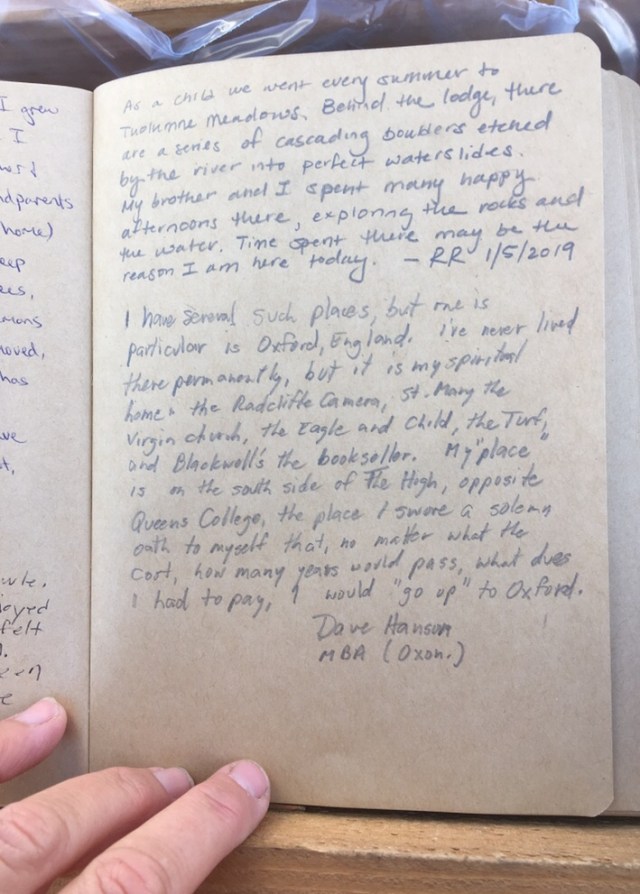 I grew
I
ndparents
home)
eep
ees,
mons
moved,
has
ave
st,
felt
As a child we went every summer to
Tuolumne Meadows. Behind the lodge, there
are a series of cascading boulders etched
by the river into perfect waterslides.
My brother and I spent many happy
afternoons there, exploring the rocks and
the water. Time spent there may be the
reason I am here today. – RR 1/5/2019
I have several such places, but one is
particular is Oxford, England. I've never lived
there permanently, but it is my spiritual
home: the Radcliffe Camera, St. Mary the
Virgin church, the Eagle and Child, the Turf,
and Blackwell's the bookseller. My "place"
is on the south side of The High, opposite
Queens College, the place I swore a solemn
oath to myself that, no matter what the
cost, how many years would pass, what dues
I had to pay, I would "go up" to Oxford.
Dave Hanson
MBA (Oxon.)